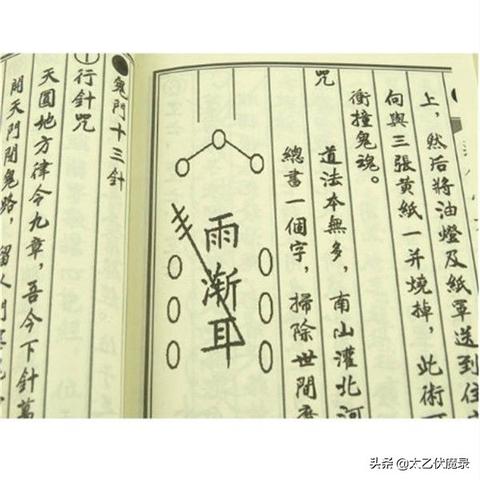 上，然后將油燈及紙罩送到住
向與三張黄紙一并燒掉，此術
衝撞鬼魂。
咒
道法本無多，南山灌北河
總書一個字，掃除世間
雨渐耳
鬼門十三針
①行針咒
天圓地方律令九章，吾今下針萬
開天門閉鬼路，留人門
头条 @太乙伏魔录